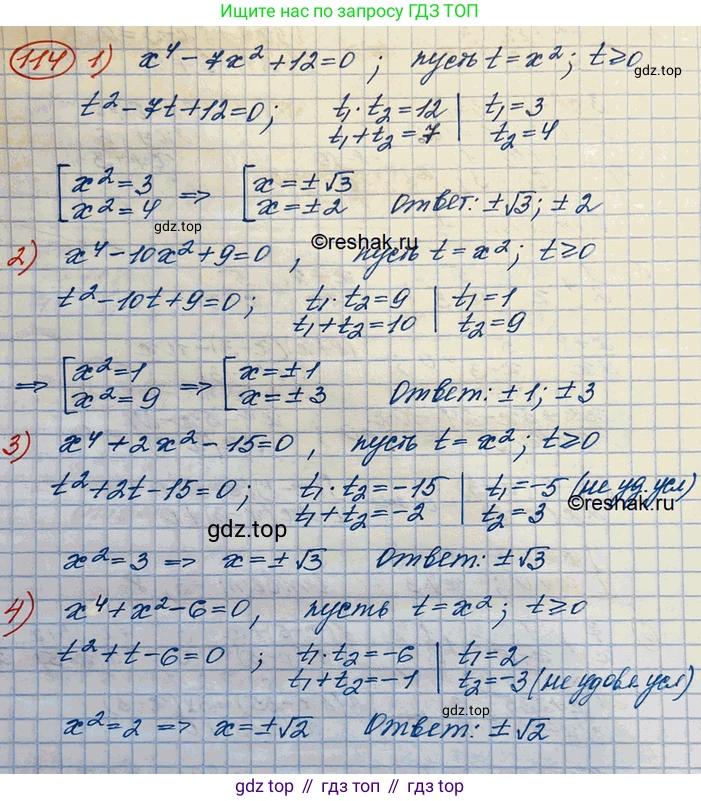 Ищите нас по запросу ГДЗ ТОП
114 1) x⁴ - 7x² + 12 = 0 ; пусть t = x² ; t ≥ 0
t² - 7t + 12 = 0 ; t₁ · t₂ = 12 | t₁ = 3
t₁ + t₂ = 7 | t₂ = 4
[ x² = 3 ⇒ [ x = ± √3
x² = 4 x = ± 2 Ответ: ± √3 ; ± 2
gdz.top
©reshak.ru
2) x⁴ - 10x² + 9 = 0 , пусть t = x² ; t ≥ 0
t² - 10t + 9 = 0 ; t₁ · t₂ = 9 | t₁ = 1
t₁ + t₂ = 10 | t₂ = 9
⇒ [ x² = 1 ⇒ [ x = ± 1
x² = 9 x = ± 3 Ответ: ± 1 ; ± 3
3) x⁴ + 2x² - 15 = 0 , пусть t = x² ; t ≥ 0
t² + 2t - 15 = 0 ; t₁ · t₂ = -15 | t₁ = -5 (не уд. усл)
t₁ + t₂ = -2 | t₂ = 3
©reshak.ru
gdz.top
x² = 3 ⇒ x = ± √3 Ответ: ± √3
4) x⁴ + x² - 6 = 0 , пусть t = x² ; t ≥ 0
t² + t - 6 = 0 ; t₁ · t₂ = -6 | t₁ = 2
t₁ + t₂ = -1 | t₂ = -3 (не удовл усл)
gdz.top
x² = 2 ⇒ x = ± √2 Ответ: ± √2
gdz.top // гдз топ // gdz.top // гдз.топ